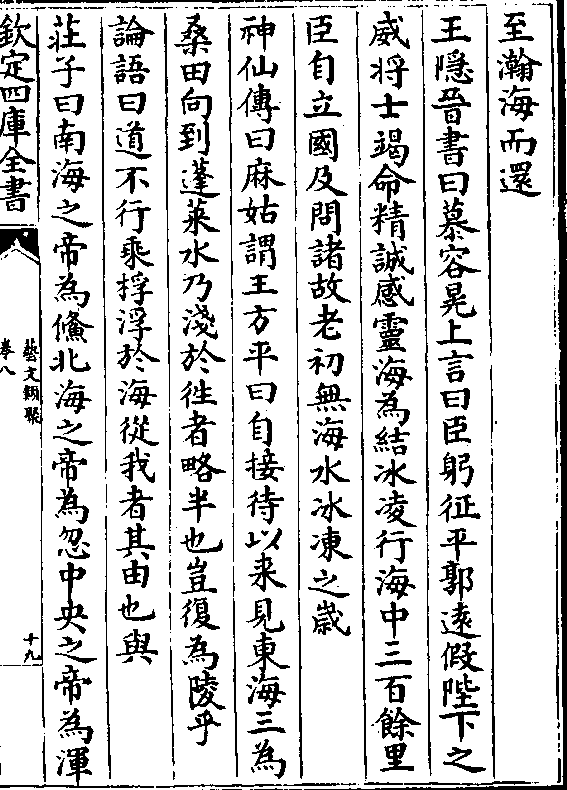 至瀚海而還
王隱晉書曰慕容晃上言曰臣躬征平郭遠假陛下之
威将士竭命精誠感靈海為結冰凌行海中三百餘里
臣自立國及問諸故老初無海水冰凍之歲
神仙傳曰麻姑謂王方平曰自接待以来見東海三為
桑田向到蓬萊水乃淺於徃者略半也豈復為陵乎
論語曰道不行乘桴浮於海從我者其由也與
莊子曰南海之帝為儵北海之帝為忽中央之帝為渾
欽定四庫全書
藝文類聚
卷八
十九